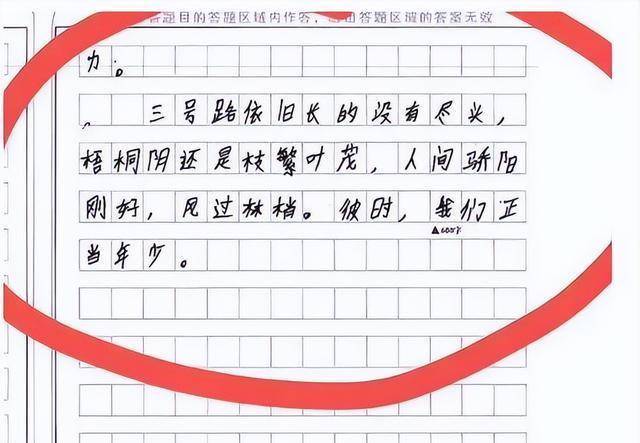 答题目的答题区域内作答，超出答题区域的答案无效
力。
三号路依旧长的没有尽头，
梧桐阴还是枝繁叶茂，人间骄阳
刚好，风过林梢。彼时，我们正
▲600字
当年少。